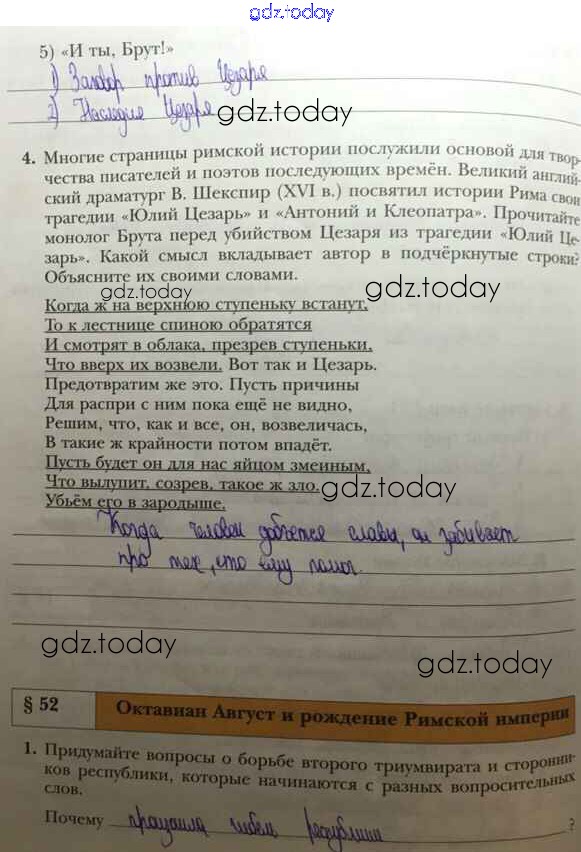 gdz.today
5) «И ты, Брут!»
1) Заговор против Цезаря
2) Наследия Цезаря gdz.today
4. Многие страницы римской истории послужили основой для твор-
чества писателей и поэтов последующих времён. Великий англий-
ский драматург В. Шекспир (XVI в.) посвятил истории Рима свои
трагедии «Юлий Цезарь» и «Антоний и Клеопатра». Прочитайте
монолог Брута перед убийством Цезаря из трагедии «Юлий Це-
зарь». Какой смысл вкладывает автор в подчёркнутые строки?
Объясните их своими словами.
gdz.today gdz.today
Когда ж на верхнюю ступеньку встанут,
То к лестнице спиною обратятся
И смотрят в облака, презрев ступеньки,
Что вверх их возвели. Вот так и Цезарь.
Предотвратим же это. Пусть причины
Для распри с ним пока ещё не видно,
Решим, что, как и все, он, возвеличась,
В такие ж крайности потом впадёт.
Пусть будет он для нас яйцом змеиным,
Что вылупит, созрев, такое ж зло.
gdz.today
Убьём его в зародыше.
Когда человек добьется славы, он забывает
про тех, кто ему помог.
gdz.today
gdz.today
§ 52 Октавиан Август и рождение Римской империи
1. Придумайте вопросы о борьбе второго триумвирата и сторонни-
ков республики, которые начинаются с разных вопросительных
слов.
Почему произошла гибель республики ?